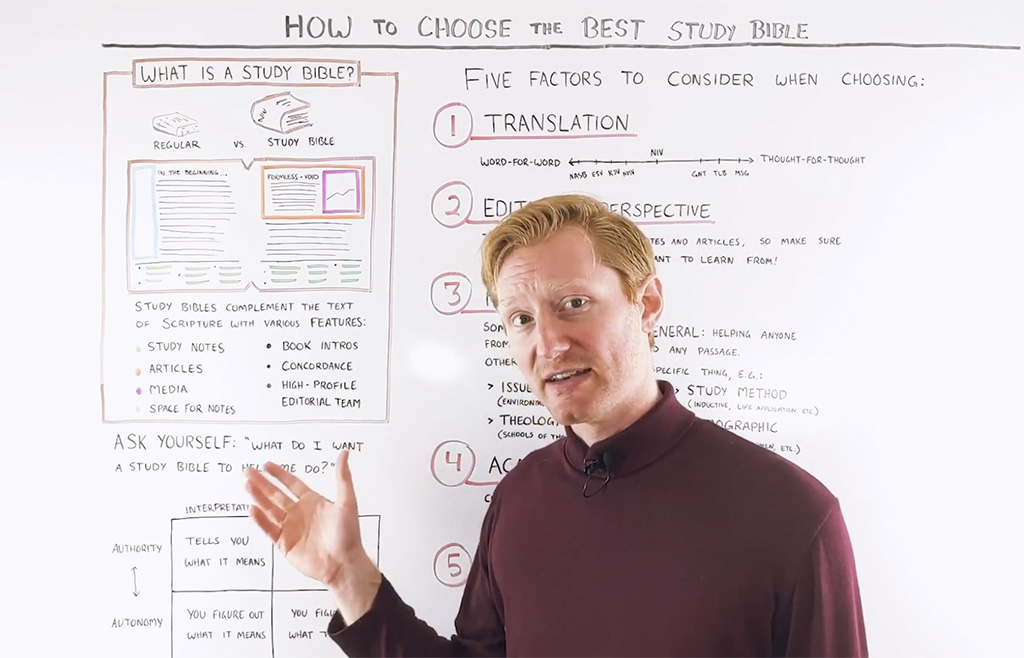 HOW TO CHOOSE THE BEST STUDY BIBLE
WHAT IS A STUDY BIBLE?
REGULAR VS. STUDY BIBLE
NIV
IN THE BEGINNING...
FORMLESS + VOID
STUDY BIBLES COMPLEMENT THE TEXT
OF SCRIPTURE WITH VARIOUS FEATURES:
STUDY NOTES
ARTICLES
MEDIA
SPACE FOR NOTES
• BOOK INTROS
• CONCORDANCE
• HIGH-PROFILE
EDITORIAL TEAM
ASK YOURSELF: "WHAT DO I WANT
A STUDY BIBLE TO ME DO?"
AUTHORITY
AUTONOMY
TELLS YOU
WHAT IT MEANS
YOU FIGURE OUT
WHAT IT MEANS
YOU
WHAT
FIVE FACTORS TO CONSIDER WHEN CHOOSING:
1 TRANSLATION
WORD-FOR-WORD
NIV
THOUGHT-FOR-THOUGHT
NASB ESV KJV
GNT TLB MSG
2
PERSPECTIVE
AND ARTICLES, SO MAKE SURE
TO LEARN FROM!
3
HELPING ANYONE
FROM
ANY PASSAGE.
THING, E.G.:
> STUDY METHOD
(INDUCTIVE, LIFE APPLICATION, ETC)
(SCHOOLS OF
ETC.)
4
5